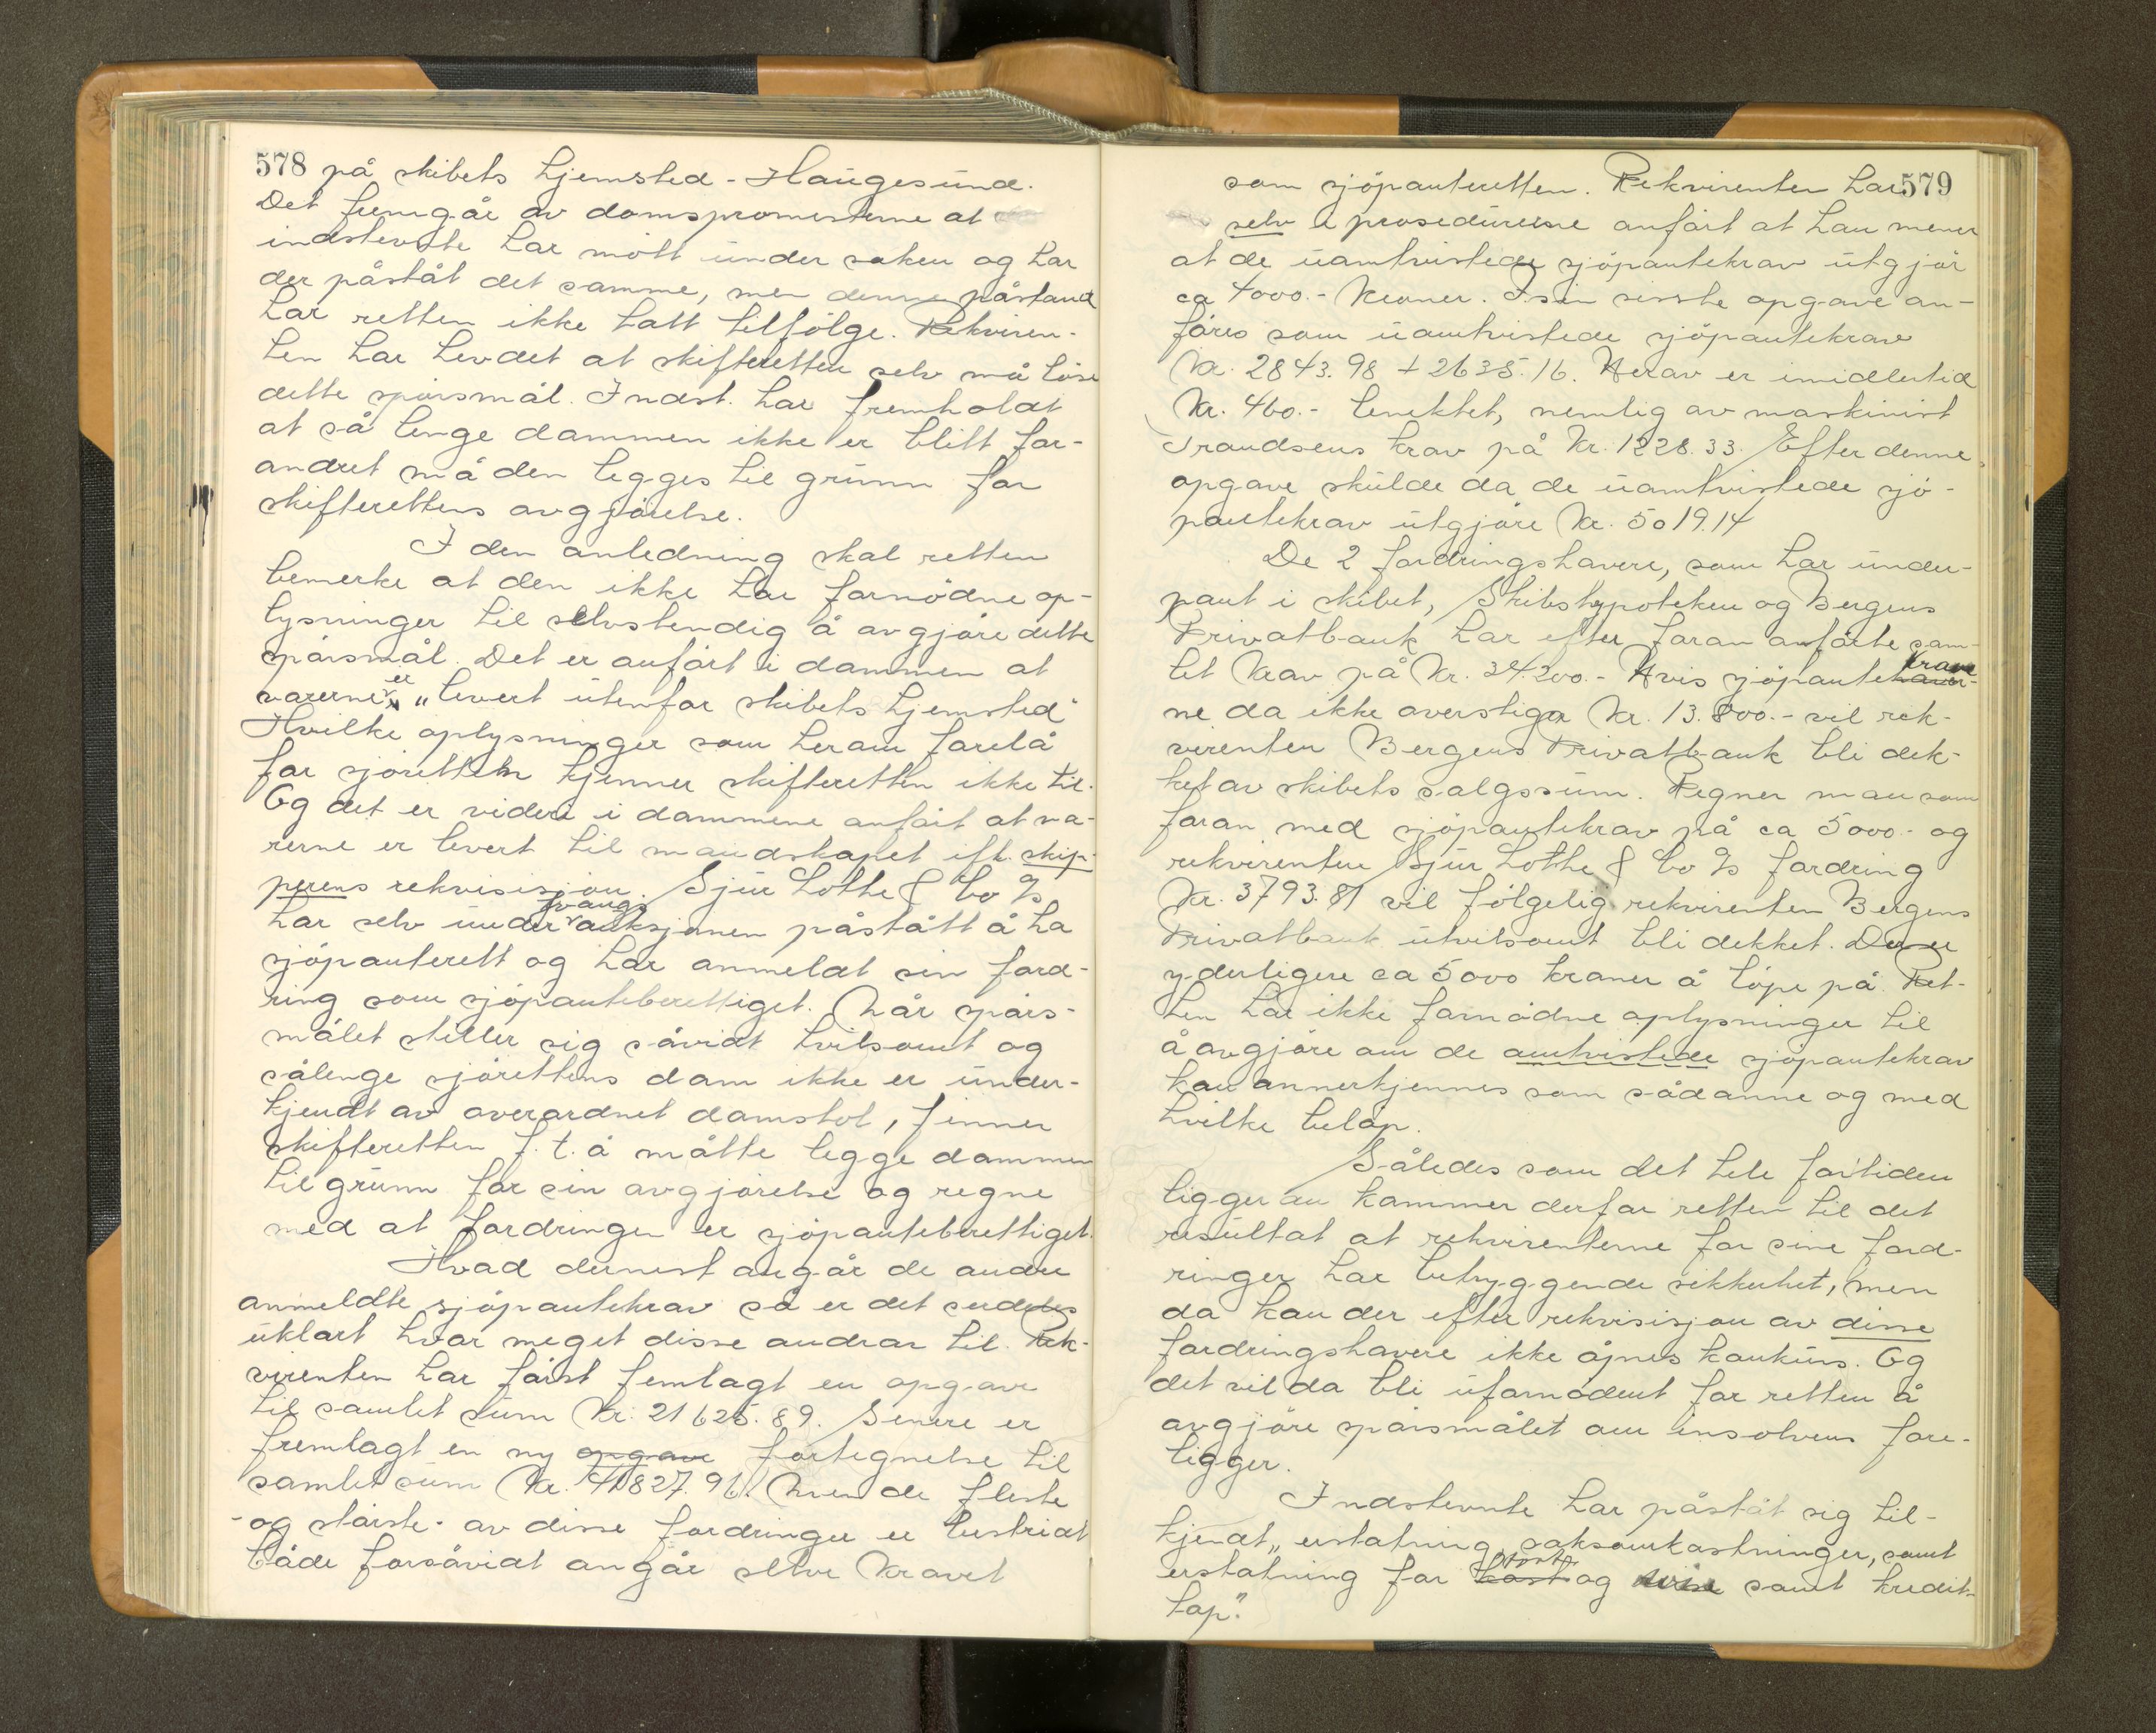 578 på skibets hjemsted - Haugesund.
Det fremgår av domspromisserne at
indstevnte har mött under saken og har
der påståt det samme, men denne påstand
har retten ikke tatt tilfölge. Rekviren-
ten har hevdet at skifteretten selv må löse
dette spörsmål. Indst. har fremholdt
at så lenge dommen ikke er blitt for-
andret må den legges til grunn for
skifterettens avgjörelse.
I den anledning skal retten
bemerke at den ikke har fornödne op-
lysninger til selvstendig å avgjöre dette
spörsmål. Det er anfört i dommen at
varerne er "levert utenfor skibets hjemsted"
Hvilke oplysninger som herom forelå
for sjöretten kjenner skifteretten ikke til.
Og det er videre i dommene anfört at va-
rerne er levert til mandskapet eft. skip-
perens rekvisisjon. Sjur Lothe & Co A/s
har selv under tvangsauksjonen påstått å ha
sjöpanterett og har anmeldt sin ford-
ring som sjöpanteberettiget. Når spörs-
målet stiller sig såvidt tvilsomt og
sålenge sjörettens dom ikke er under-
kjendt av overordnet domstol, finner
skifteretten f. t. å måtte legge dommen
til grunn for sin avgjörelse og regne
med at fordringen er sjöpanteberettiget.
Hvad dernest angår de andre
anmeldte sjöpantekrav så er det serdeles
uklart hvor meget disse andrar til. Rek-
virenten har först femlagt en opgave
til samlet sum Kr. 21625.89. Senere er
fremlagt en ny opgave fortegnelse til
samlet sum Kr. 41827.96. Men de fleste
- og störste - av disse fordringer er bestridt
både forsåvidt angår selve kravet
som sjöpanteretten. Rekvirenten har 579
selv i prosedurerne anfört at han mener
at de uomtvistede sjöpantekrav utgjör
ca 4000.- Kroner. I sin sisste opgave an-
föres som uomtvistede sjöpantekrav
Kr. 2843.98 + 2635.16. Herav er imidlertid
Kr. 460.- benektet, nemlig av maskinist
Trondsens krav på Kr. 1228.33. Efter denne
opgave skulde da de uomtvistede sjö-
pantekrav utgjöre Kr. 5019.14
De 2 fordringshavere, som har under-
pant i skibet, Skibshypoteken og Bergens
Privatbank har efter foran anförte sam-
let krav på Kr. 34.200.- Hvis sjöpantekrave-
ne da ikke overstiger Kr. 13.800.- vil rek-
virenten Bergens Privatbank bli dek-
ket av skibets salgssum. Regner man som
foran med sjöpantekrav på ca 5000.- og
rekvirenten Sjur Lothe & Co A/s fordring
Kr. 3793.81 vil fölgelig rekvirenten Bergens
Privatbank utvilsomt bli dekket. Der er
yderligere ca 5000 kroner å löpe på. Ret-
ten har ikke fornödne oplysninger til
å avgjöre om de omtvistede sjöpantekrav
kan annerkjennes som sådanne og med
hvilke belöp.
Således som det hele fortiden
ligger an kommer derfor retten til det
resultat at rekvirenterne for sine ford-
ringer har betryggende sikkerhet, men
da kan der efter rekvisisjon av disse
fordringshavere ikke åpnes konkurs. Og
det vil da bli ufornödent for retten å
avgjöre spörsmålet om insolvens fore-
ligger.
Indstevnte har påståt sig til-
kjendt "erstatning, saksomkostninger, samt
erstatning for tort og svie samt kredit-
tap."